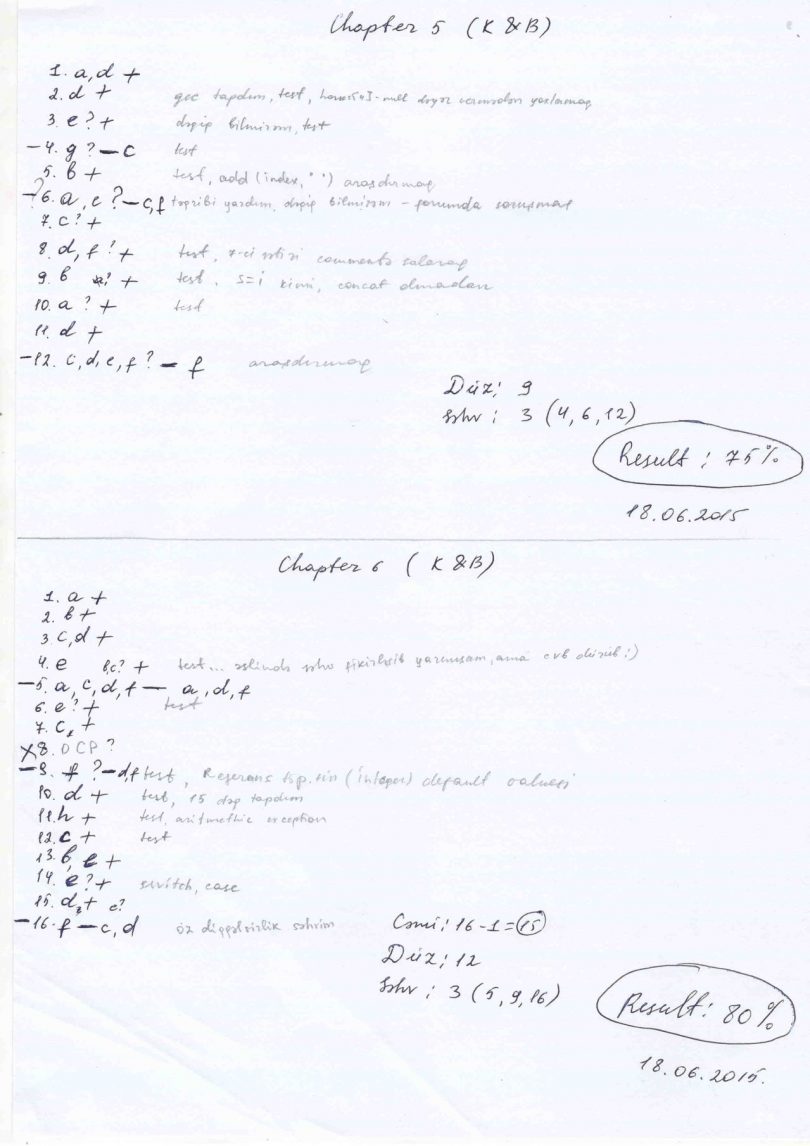 Chapter 5 (K & B)
1. a, d +
2. d + gec tapdım, test,
3. e ? + dəqiq bilmirəm, test
- 4. g ? - c test
5. b + test, add (index, " ") araşdırmaq
- ? 6. a, e ? - c, f təqribi yazdım, dəqiq bilmirəm - forumda soruşmaq
7. c ? +
8. d, f ? + test, 7-ci sətri commentə salaraq
9. b a? + test, s=i kimi, concat olmadan
10. a ? + test
11. d +
- 12. c, d, e, f ? - f araşdırmaq
Düz: 9
Səhv : 3 (4, 6, 12)
Result : 75%
18.06.2015
Chapter 6 ( K & B)
1. a +
2. b +
3. c, d +
4. e b, c? + test... əslində səhv fikirləşib yazmışam, ama cvb düzüb :)
- 5. a, c, d, f - a, d, f
6. e ? + test
7. c, +
X 8. OCP ?
- 9. f ? - d, f test, Referans tip.nin (integer) default valuesi
10. d + test, 15 dəq tapdım
11. h + test, aritmethic exception
12. c + test
13. b, e +
14. e ? + switch, case
15. d, + c?
- 16. f - c, d öz diqqətsizlik səhvim
Cəmi : 16 - 1 = 15
Düz : 12
Səhv : 3 (5, 9, 16)
Result : 80%
18.06.2015.